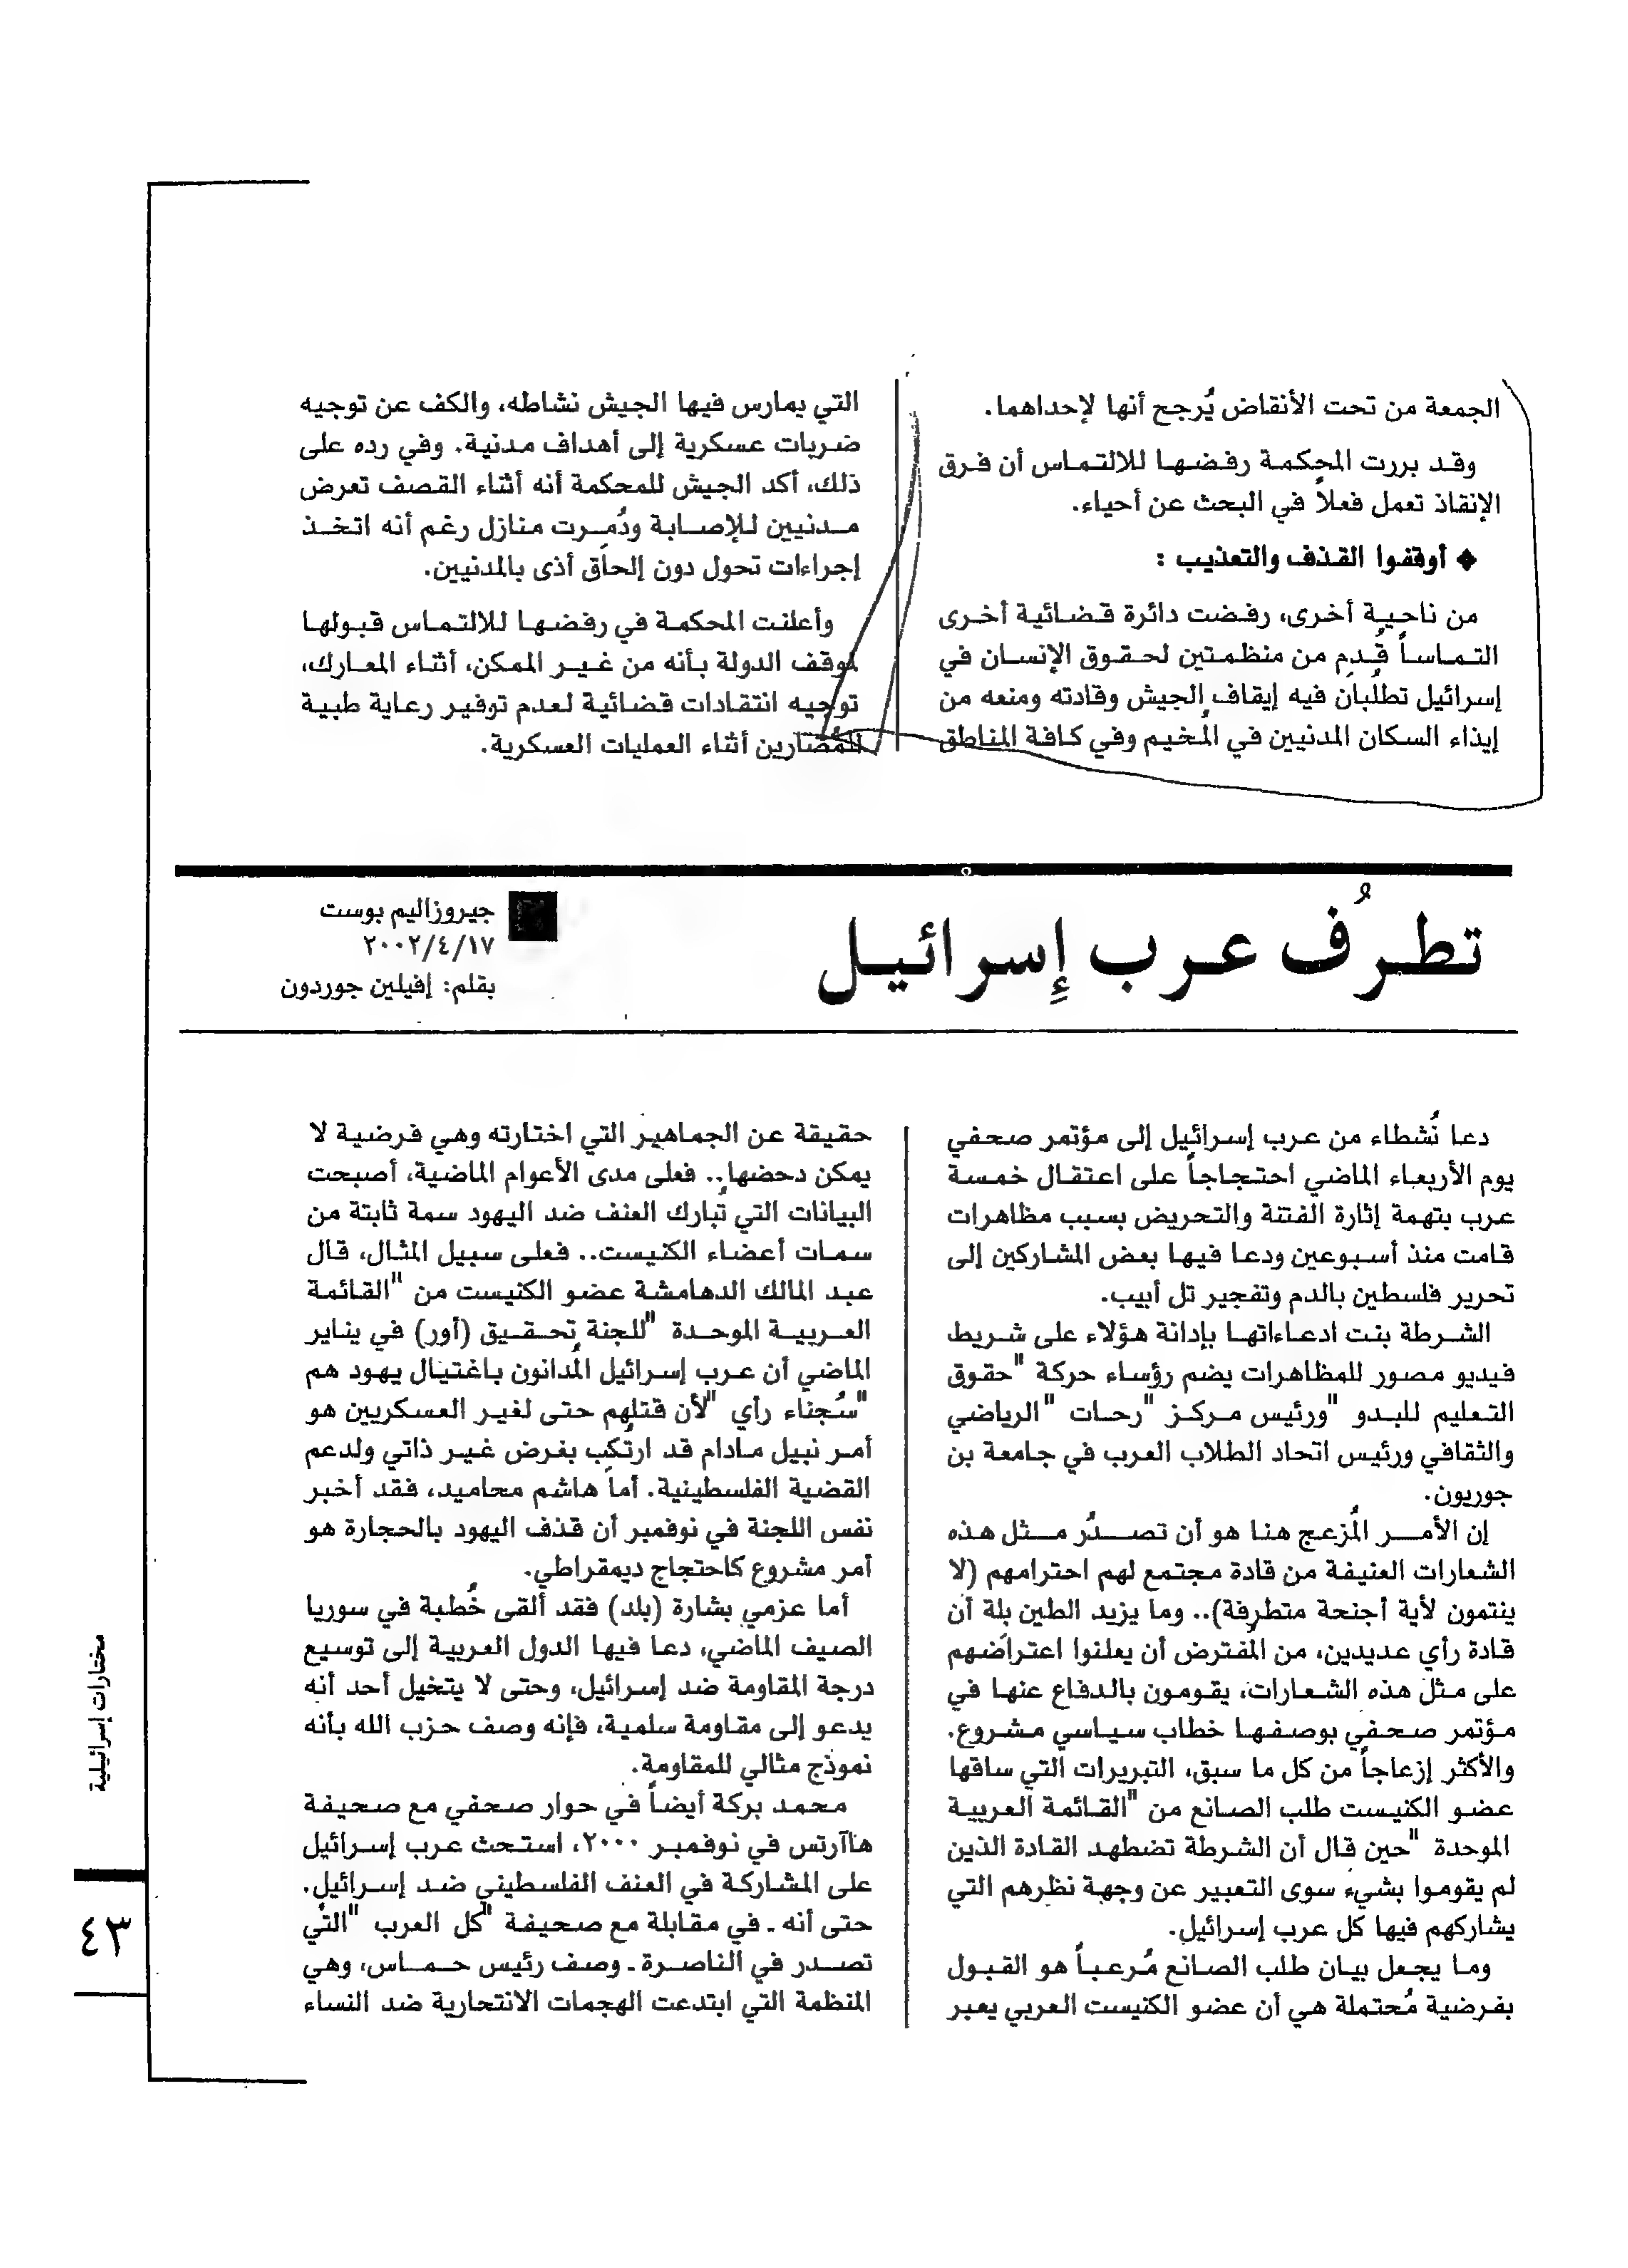 الجمعة من تحت الأنقاض يُرجح أنها لإحداهما.
وقد بررت المحكمة رفضها للالتماس أن فرق
الإنقاذ تعمل فعلاً في البحث عن أحياء.
❖ أوقفوا القذف والتعذيب :
من ناحية أخرى، رفضت دائرة قضائية أخرى
التماساً قُدم من منظمتين لحقوق الإنسان في
إسرائيل تطلُبان فيه إيقاف الجيش وقادته ومنعه من
إيذاء السكان المدنيين في المُخيم وفي كافة المناطق
التي يمارس فيها الجيش نشاطه، والكف عن توجيه
ضربات عسكرية إلى أهداف مدنية. وفي رده على
ذلك، أكد الجيش للمحكمة أنه أثناء القصف تعرض
مدنيين للإصابة ودُمِرت منازل رغم أنه اتخذ
إجراءات تحول دون إلحاق أذى بالمدنيين.
وأعلنت المحكمة في رفضها للالتماس قبولها
لموقف الدولة بأنه من غير الممكن، أثناء المعارك،
توجيه انتقادات قضائية لعدم توفير رعاية طبية
للمُضارين أثناء العمليات العسكرية.
تطرُف عرب إِسرائيل
جيروزاليم بوست
٢٠٠٢/٤/١٧
بقلم: إفيلين جوردون
دعا نُشطاء من عرب إسرائيل إلى مؤتمر صحفي
يوم الأربعاء الماضي احتجاجاً على اعتقال خمسة
عرب بتهمة إثارة الفتنة والتحريض بسبب مظاهرات
قامت منذ أسبوعين ودعا فيها بعض المشاركين إلى
تحرير فلسطين بالدم وتفجير تل أبيب.
الشرطة بنت ادعاءاتها بإدانة هؤلاء على شريط
فيديو مصور للمظاهرات يضم رؤساء حركة "حقوق
التعليم للبدو "ورئيس مركز "رحات "الرياضي
والثقافي ورئيس اتحاد الطلاب العرب في جامعة بن
جوريون.
إن الأمر المُزعج هنا هو أن تصدُر مثل هذه
الشعارات العنيفة من قادة مجتمع لهم احترامهم (لا
ينتمون لأية أجنحة متطرفة).. وما يزيد الطين بِلة أن
قادة رأي عديدين، من المُفترض أن يعلنوا اعتراضهم
على مثل هذه الشعارات، يقومون بالدفاع عنها في
مؤتمر صحفي بوصفها خطاب سياسي مشروع.
والأكثر إزعاجاً من كل ما سبق، التبريرات التي ساقها
عضو الكنيست طلب الصانع من "القائمة العربية
الموحدة "حين قال أن الشرطة تضطهد القادة الذين
لم يقوموا بشيء سوى التعبير عن وجهة نظرهم التي
يشاركهم فيها كل عرب إسرائيل.
وما يجعل بيان طلب الصانع مُرعباً هو القبول
بفرضية مُحتملة هي أن عضو الكنيست العربي يعبر
حقيقة عن الجماهير التي اختارته وهي فرضية لا
يمكن دحضها.. فعلى مدى الأعوام الماضية، أصبحت
البيانات التي تُبارك العنف ضد اليهود سمة ثابتة من
سمات أعضاء الكنيست.. فعلى سبيل المثال، قال
عبد المالك الدهامشة عضو الكنيست من "القائمة
العربية الموحدة "للجنة تحقيق (أور) في يناير
الماضي أن عرب إسرائيل المُدانون باغتيال يهود هم
"سُجناء رأي "لأن قتلهم حتى لغير العسكريين هو
أمر نبيل مادام قد ارتُكِب بغرض غير ذاتي ولدعم
القضية الفلسطينية. أما هاشم محاميد، فقد أخبر
نفس اللجنة في نوفمبر أن قذف اليهود بالحجارة هو
أمر مشروع كاحتجاج ديمقراطي.
أما عزمي بشارة (بلد) فقد ألقى خُطبة في سوريا
الصيف الماضي، دعا فيها الدول العربية إلى توسيع
درجة المقاومة ضد إسرائيل، وحتى لا يتخيل أحد أنه
يدعو إلى مقاومة سلمية، فإنه وصف حزب الله بأنه
نموذج مثالي للمقاومة.
محمد بركة أيضاً في حوار صحفي مع صحيفة
هاآرتس في نوفمبر ٢٠٠٠، استحث عرب إسرائيل
على المشاركة في العنف الفلسطيني ضد إسرائيل.
حتى أنه ـ في مقابلة مع صحيفة "كل العرب "التي
تصدر في الناصرة ـ وصف رئيس حماس، وهي
المنظمة التي ابتدعت الهجمات الانتحارية ضد النساء
مختارات إسرائيلية
٤٣